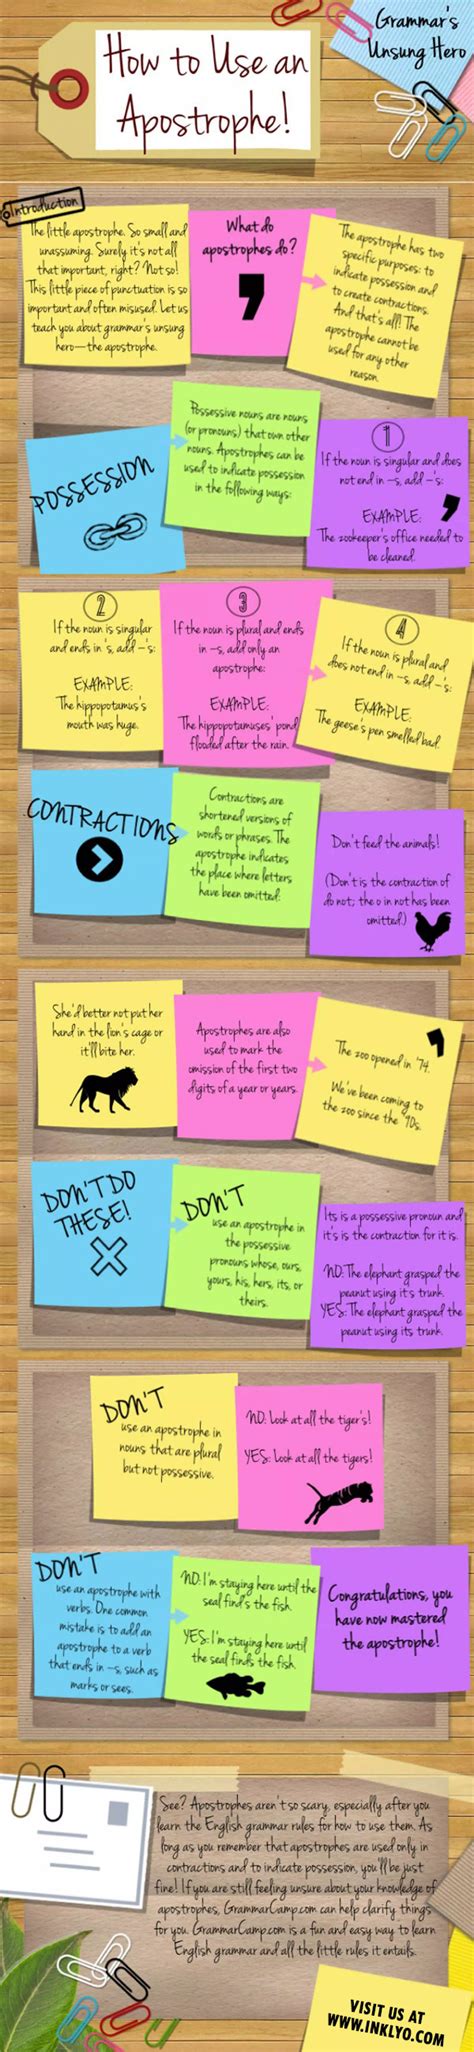 How to Use an
Apostrophe!
Grammar's
Unsung Hero
Introduction
The little apostrophe. So small and
unassuming. Surely it's not all
that important, right? Not so!
This little piece of punctuation is so
important and often misused. Let us
teach you about grammar's unsung
hero—the apostrophe.
What do
apostrophes do?
The apostrophe has two
specific purposes: to
indicate possession and
to create contractions.
And that's all! The
apostrophe cannot be
used for any other
reason.
POSSESSION
Possessive nouns are nouns
(or pronouns) that own other
nouns. Apostrophes can be
used to indicate possession
in the following ways:
1
If the noun is singular and does
not end in –s, add –'s:
EXAMPLE:
The zookeeper's office needed to
be cleaned.
2
If the noun is singular
and ends in 's, add –s:
EXAMPLE:
The hippopotamus's
mouth was huge.
3
If the noun is plural and ends
in –s, add only an
apostrophe:
EXAMPLE:
The hippopotamuses' pond
flooded after the rain.
4
If the noun is plural and
does not end in –s, add –'s:
EXAMPLE:
The geese's pen smelled bad.
CONTRACTIONS
Contractions are
shortened versions of
words or phrases. The
apostrophe indicates
the place where letters
have been omitted.
Don't feed the animals!
(Don't is the contraction of
do not; the o in not has been
omitted.)
She'd better not put her
hand in the lion's cage or
it'll bite her.
Apostrophes are also
used to mark the
omission of the first two
digits of a year or years.
The zoo opened in '74.
We've been coming to
the zoo since the '90s.
DON'T DO
THESE!
DON'T
use an apostrophe in
the possessive
pronouns whose, ours,
yours, his, hers, its, or
theirs.
Its is a possessive pronoun and
it's is the contraction for it is.
NO: The elephant grasped the
peanut using it's trunk.
YES: The elephant grasped the
peanut using its trunk.
DON'T
use an apostrophe in
nouns that are plural
but not possessive.
NO: Look at all the tiger's!
YES: Look at all the tigers!
DON'T
use an apostrophe with
verbs. One common
mistake is to add an
apostrophe to a verb
that ends in –s, such as
marks or sees.
NO: I'm staying here until the
seal find's the fish.
YES: I'm staying here until
the seal finds the fish.
Congratulations, you
have now mastered
the apostrophe!
See? Apostrophes aren't so scary, especially after you
learn the English grammar rules for how to use them. As
long as you remember that apostrophes are used only in
contractions and to indicate possession, you'll be just
fine! If you are still feeling unsure about your knowledge of
apostrophes, GrammarCamp.com can help clarify things
for you. GrammarCamp.com is a fun and easy way to learn
English grammar and all the little rules it entails.
VISIT US AT
WWW.INKLYO.COM